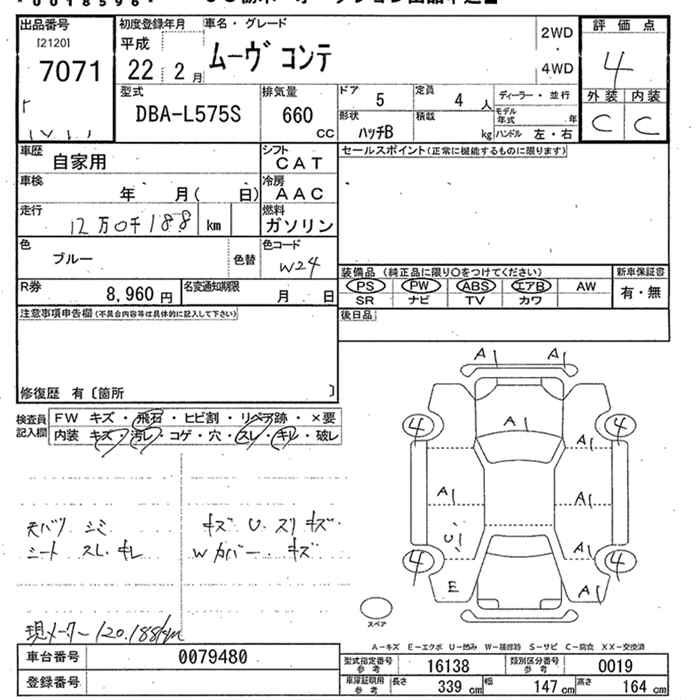 出品番号
[2120]
7071
初度登録年月
平成
22 2月
車名・グレード
ムーヴ コンテ
2WD
4WD
評価点
4
外装 内装
C C
型式
DBA-L575S
排気量
660
CC
ドア
5
定員
4人
ディーラー・並行
モデル年式 年
形状
ハッチB
積載
kg
ハンドル 左・右
車歴
自家用
シフト
CAT
セールスポイント(正常に機能するものに限ります)
車検
年 月( 日)
冷房
AAC
走行
12万0千188 km
燃料
ガソリン
色
ブルー
色替
色コード
W24
装備品(純正品に限り○をつけてください)
新車保証書
PS PW ABS エアB AW
有・無
SR ナビ TV カワ
R券
8,960円
名変通知期限
月 日
注意事項申告欄(不具合内容等は具体的に記入して下さい)
後日品
修復歴 有〔箇所 〕
検査員記入欄
FW キズ・飛石・ヒビ割・リペア跡・×要
内装 キズ・汚レ・コゲ・穴・スレ・キレ・破レ
天バリ シミ
シート スレ キレ
キズ U スリキズ
Wカバー キズ
現メーター120.188km
A1 A1
A1
4 4
A1
A1 A1
U1
A1
4 4
E A1
スペア
A-キズ E-エクボ U-凹み W-補修跡 S-サビ C-腐食 XX-交換済
車台番号
0079480
登録番号
型式指定番号参考
16138
類別区分番号参考
0019
車庫証明用参考
長さ 339cm 幅 147cm 高さ 164cm